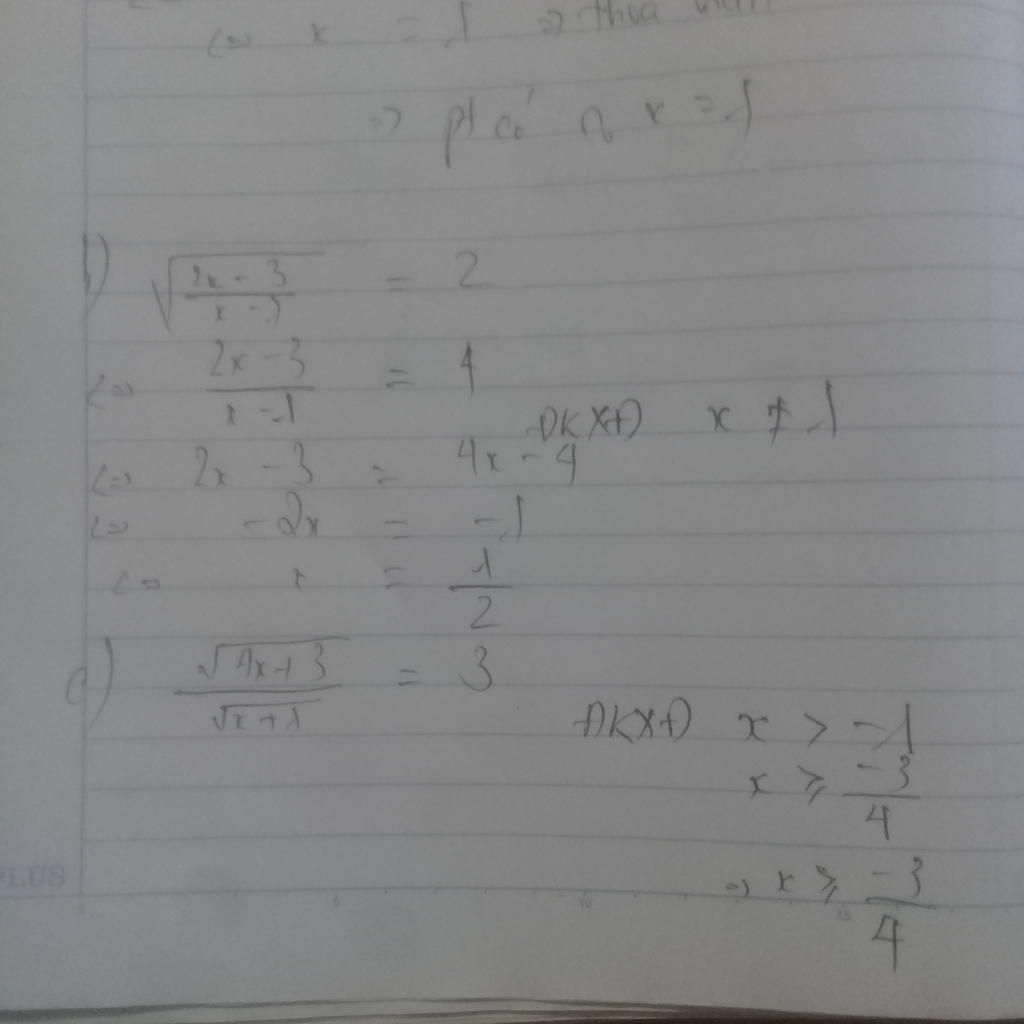 <=> x = 1 => thỏa mãn
=> pt có n₀ x = 1
b) √((2x - 3)/(x - 1)) = 2
<=> (2x - 3)/(x - 1) = 4
ĐKXĐ x ≠ 1
<=> 2x - 3 = 4x - 4
<=> -2x = -1
<=> x = 1/2
c) √(4x + 3)/√(x + 1) = 3
ĐKXĐ x > -1
x ≥ -3/4
=> x ≥ -3/4
PLUS
5 10 15